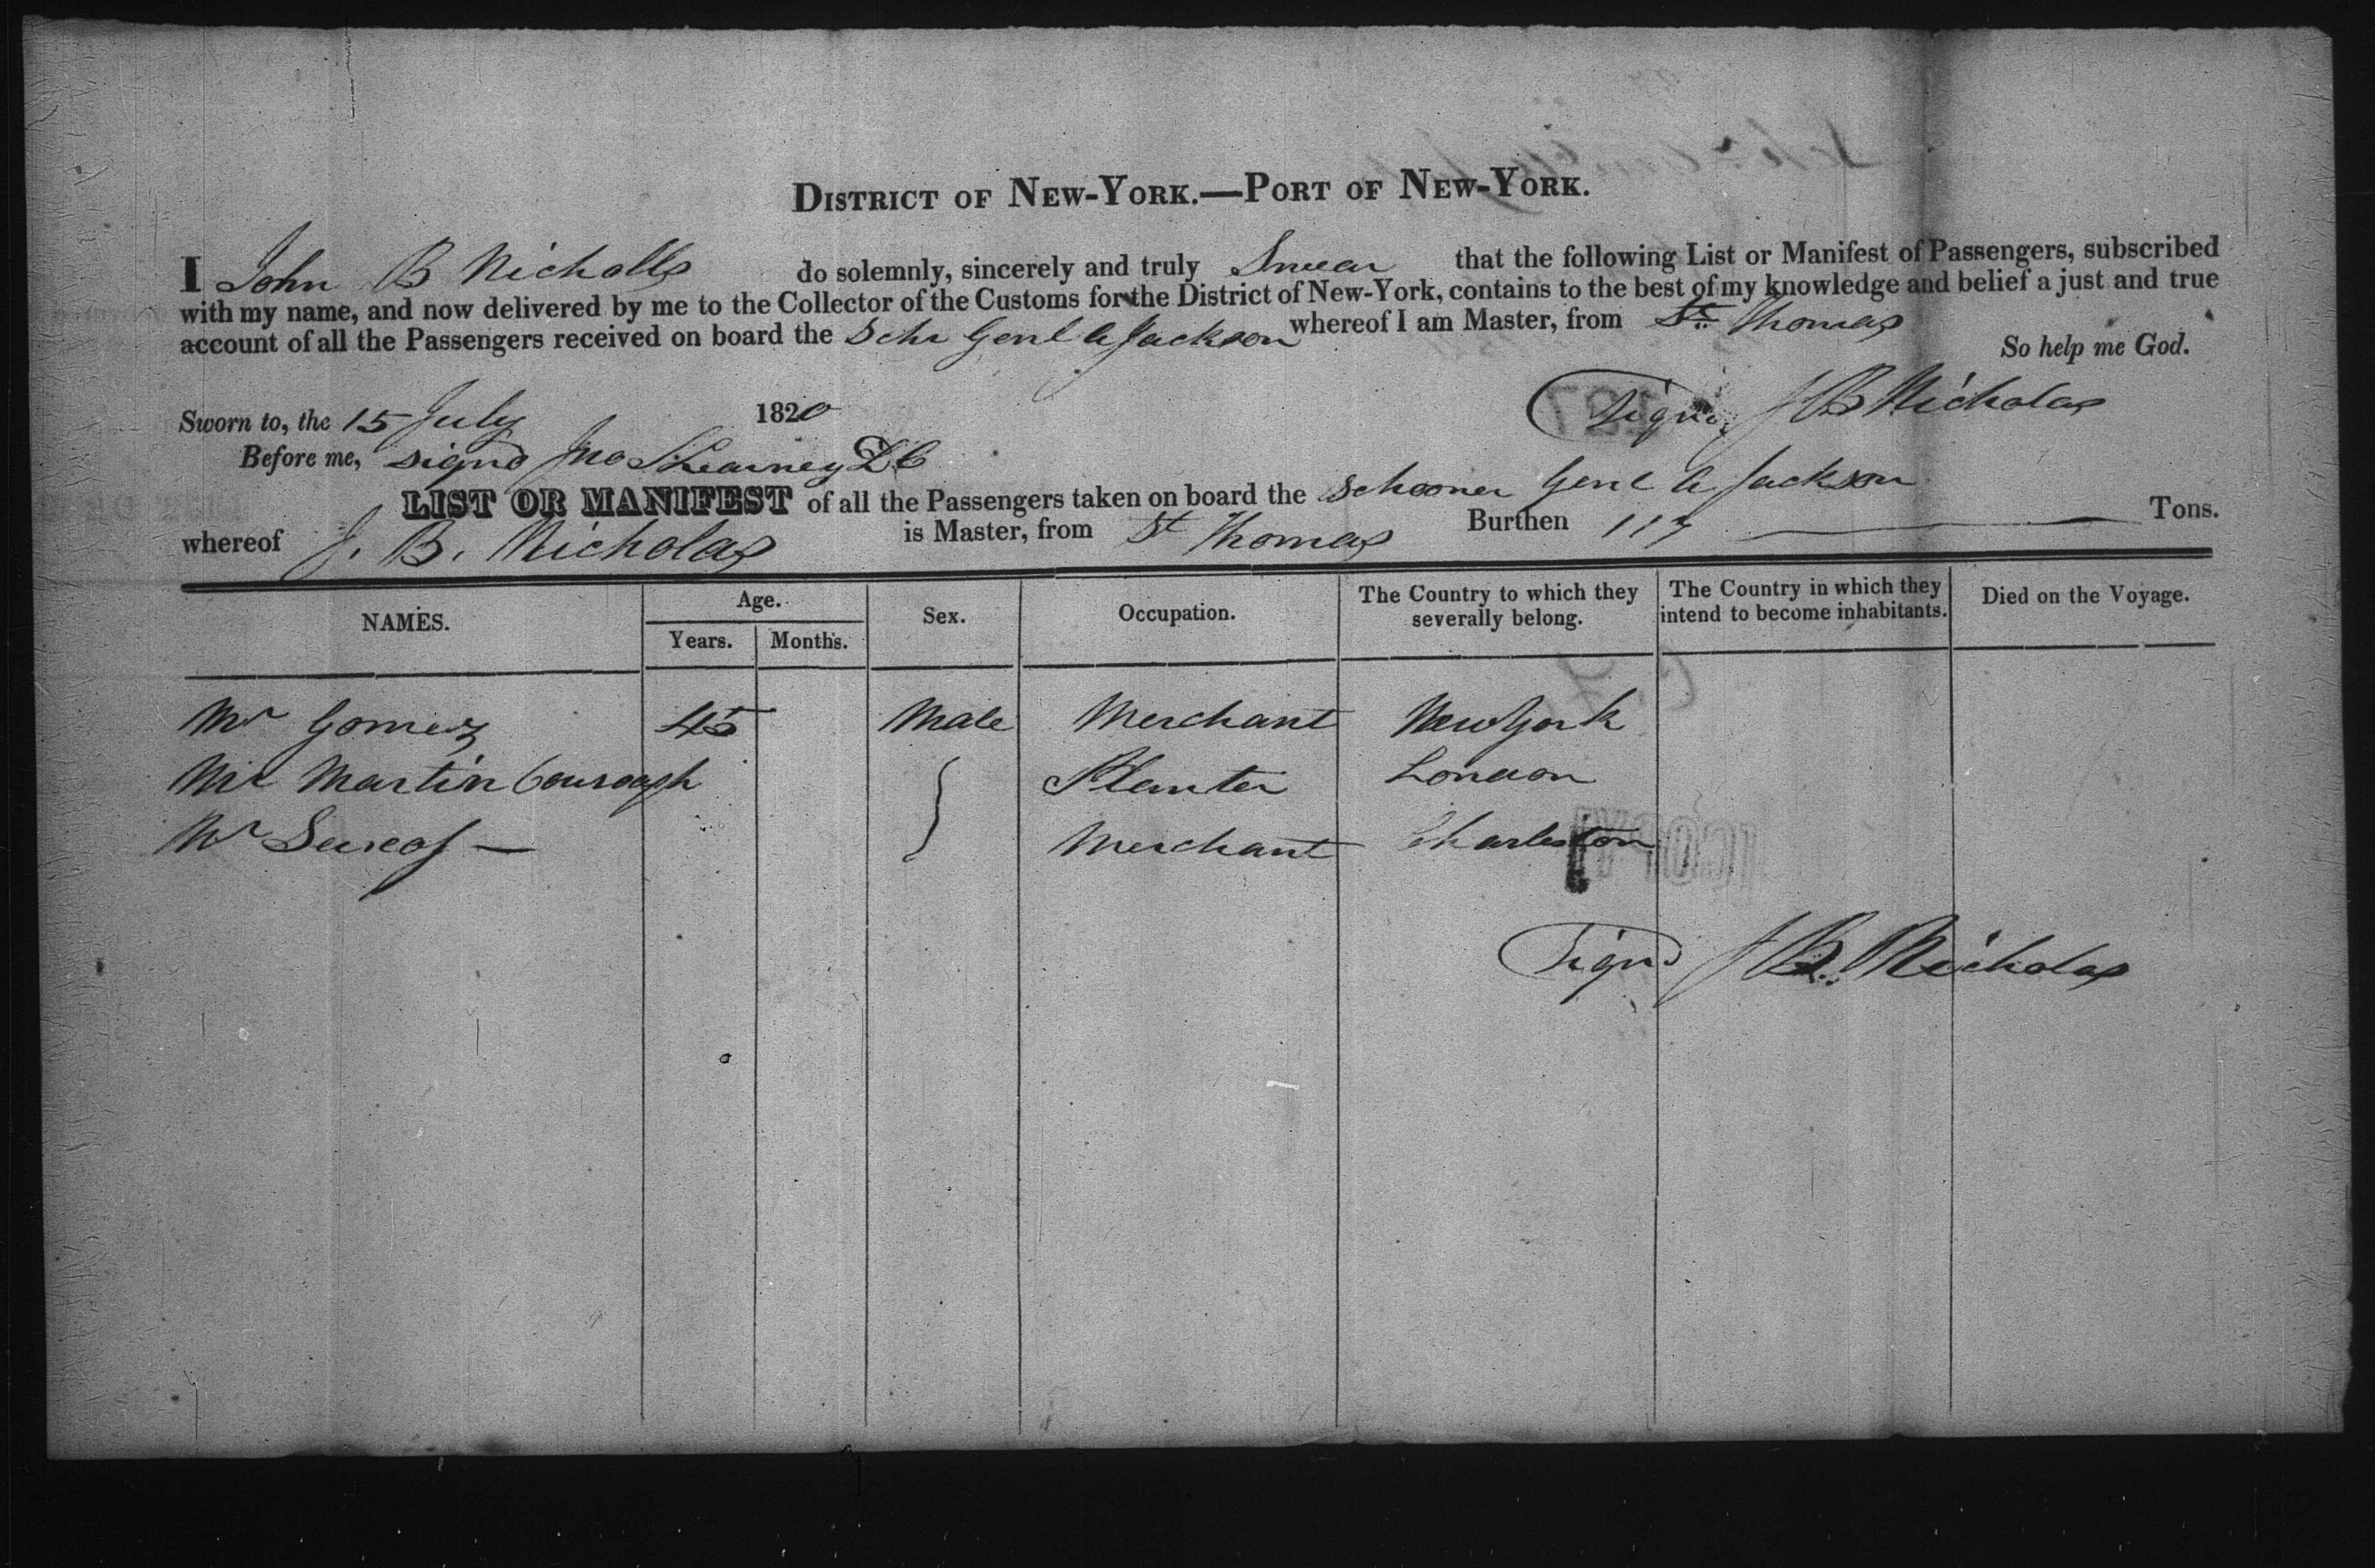 DISTRICT OF NEW-YORK.—PORT OF NEW-YORK.
I John B Nicholls do solemnly, sincerely and truly Swear that the following List or Manifest of Passengers, subscribed
with my name, and now delivered by me to the Collector of the Customs for the District of New-York, contains to the best of my knowledge and belief a just and true
account of all the Passengers received on board the Schr Genl A Jackson whereof I am Master, from St. Thomas
So help me God.
Sworn to, the 15 July 1820
Signd J B Nicholas
Before me, signd Jno Skearney DC
LIST OR MANIFEST of all the Passengers taken on board the Schooner Genl A Jackson
whereof J. B. Nicholas is Master, from St Thomas Burthen 117 Tons.
NAMES. Age. Sex. Occupation. The Country to which they severally belong. The Country in which they intend to become inhabitants. Died on the Voyage.
Years. Months.
Mr Gomez 45 Male Merchant New York
Mr Martin Planter London
Mr Merchant Charleston
Signd J B. Nicholas